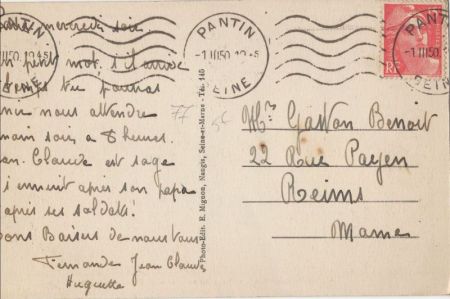 mercredi soir
petit mot. s'il arrive
temps tu pourras
nous attendre
soir, a 8 heures.
Claude est sage
s'ennuit après son papa
après ses soldats!
Bons Baisers de nous tous
Fernande Jean Claude
Huguette
PANTIN
-1 III 50
SEINE
PANTIN
-1 III 50
SEINE
RF
77
Photo-Edit. E. Mignon, Nangis, Seine-et-Marne - Tél. 140
Mr Gaston Benoit
22 Rue Payen
Reims
Marne